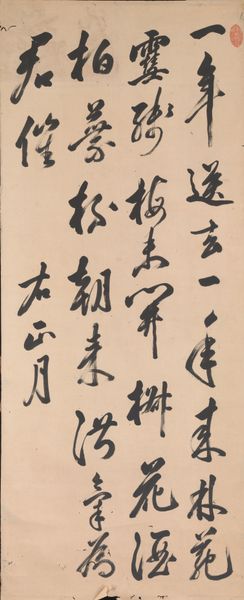 一年送去一年来林苑
雪残梅未開椒花酒
柏葉杯朝来淑氣為
君催
右正月